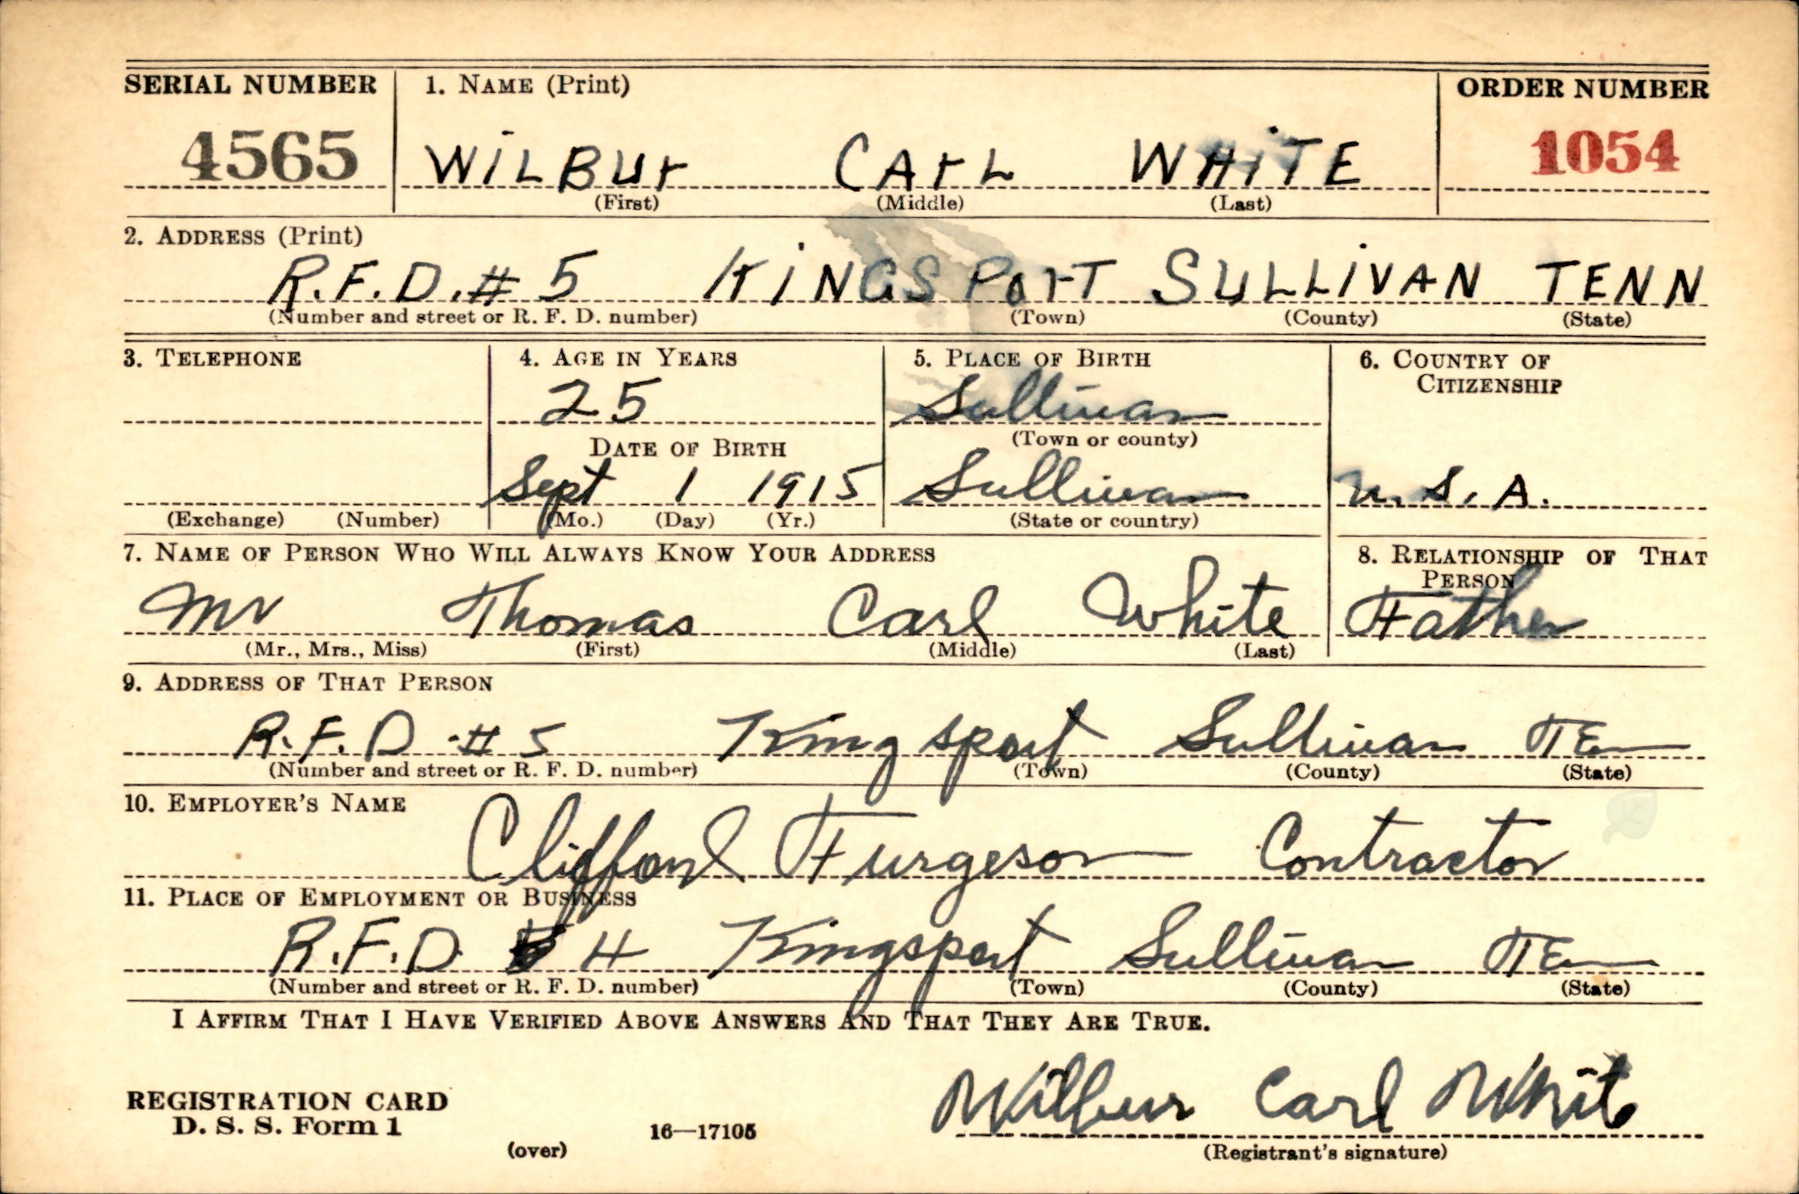 SERIAL NUMBER 1. NAME (Print) ORDER NUMBER
4565 WiLBUr CArL WHiTE 1054
(First) (Middle) (Last)
2. ADDRESS (Print)
R.F.D. # 5 KiNGSPOrT SULLiVAN TENN
(Number and street or R. F. D. number) (Town) (County) (State)
3. TELEPHONE 4. AGE IN YEARS 5. PLACE OF BIRTH 6. COUNTRY OF CITIZENSHIP
25 Sullivan
DATE OF BIRTH (Town or county)
Sept 1 1915 Sullivan U.S.A.
(Exchange) (Number) (Mo.) (Day) (Yr.) (State or country)
7. NAME OF PERSON WHO WILL ALWAYS KNOW YOUR ADDRESS 8. RELATIONSHIP OF THAT PERSON
Mr Thomas Carl White Father
(Mr., Mrs., Miss) (First) (Middle) (Last)
9. ADDRESS OF THAT PERSON
R.F.D # 5 Kingsport Sullivan TEn
(Number and street or R. F. D. number) (Town) (County) (State)
10. EMPLOYER'S NAME
Clifford Furgeson Contractor
11. PLACE OF EMPLOYMENT OR BUSINESS
R.F.D. 4 Kingsport Sullivan TEn
(Number and street or R. F. D. number) (Town) (County) (State)
I AFFIRM THAT I HAVE VERIFIED ABOVE ANSWERS AND THAT THEY ARE TRUE.
Wilbur Carl White
REGISTRATION CARD
D. S. S. Form 1 16—17105
(over) (Registrant's signature)